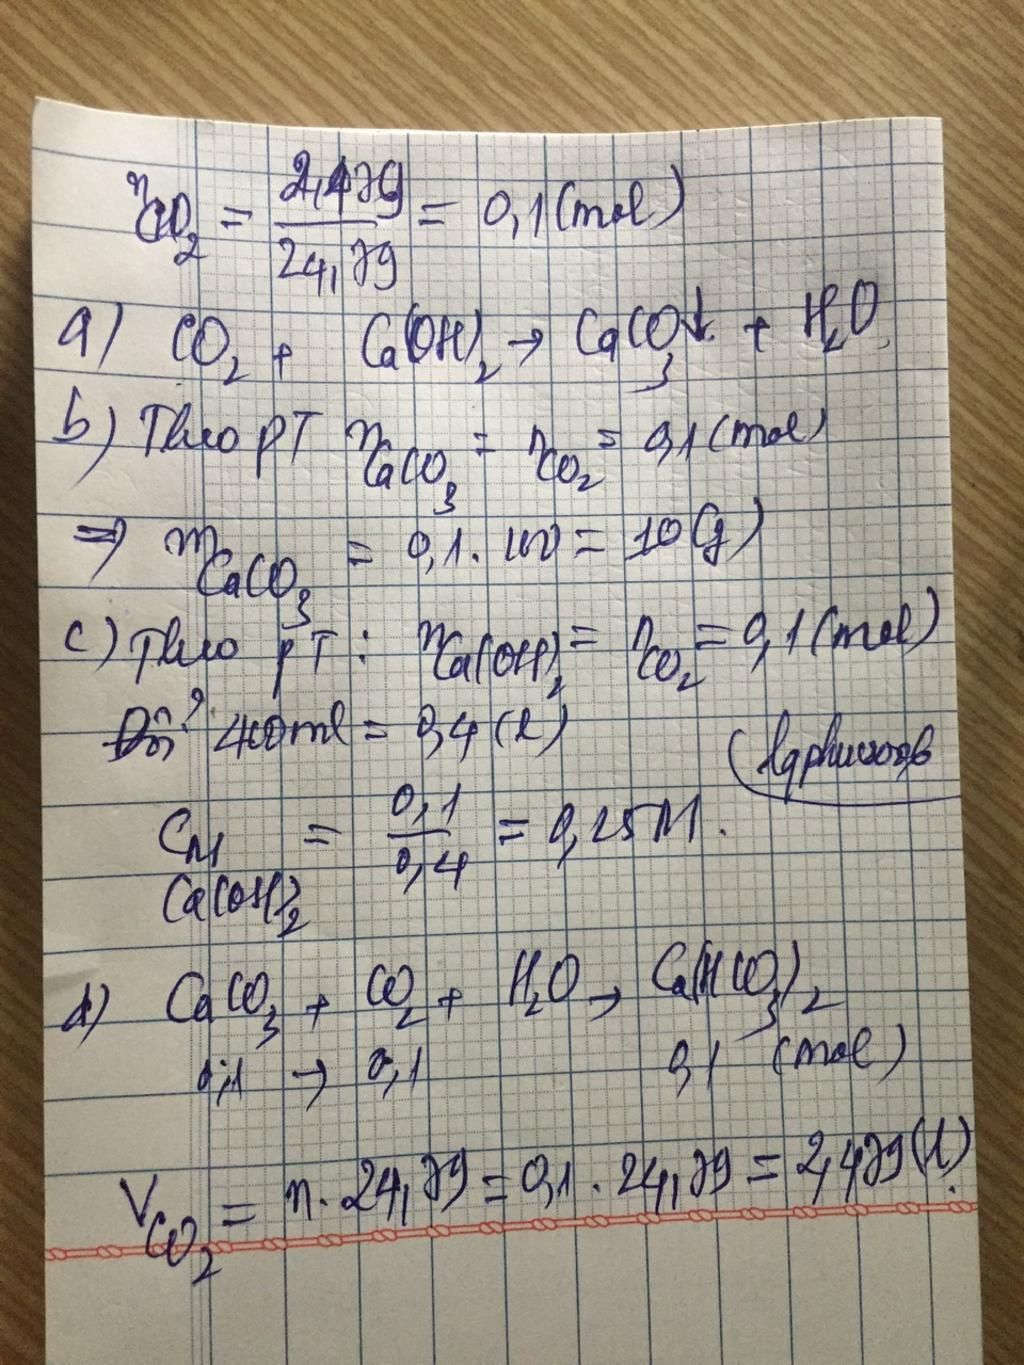 nCO₂ = 2,479/24,79 = 0,1 (mol)
a) CO₂ + Ca(OH)₂ → CaCO₃↓ + H₂O
b) Theo PT nCaCO₃ = nCO₂ = 0,1 (mol)
⇒ mCaCO₃ = 0,1 . 100 = 10 (g)
c) Theo PT : nCa(OH)₂ = nCO₂ = 0,1 (mol)
Đổi 400ml = 0,4 (l)
CM Ca(OH)₂ = 0,1/0,4 = 0,25M.
d) CaCO₃ + CO₂ + H₂O → Ca(HCO₃)₂
0,1 → 0,1 0,1 (mol)
VCO₂ = n. 24,79 = 0,1 . 24,79 = 2,479 (l).